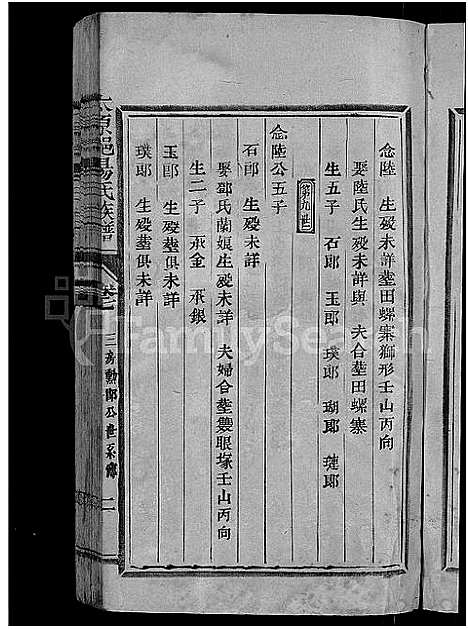 念陸 生殁未詳塟田螺寨獅形壬山丙向
娶陸氏生殁未詳與 夫合塟田螺寨
生五子 石郎 玉郎 璞郎 瑚郎 璉郎
第九世
念陸公五子
石郎 生殁未詳
娶鄧氏蘭娘生殁未詳 夫婦合塟 眼塚壬山丙向
生二子 永金 永銀
玉郎 生殁塟俱未詳
璞郎 生殁塟俱未詳
太原邑楊氏族譜 卷七 三房勳郎公世系 二
FamilySearch